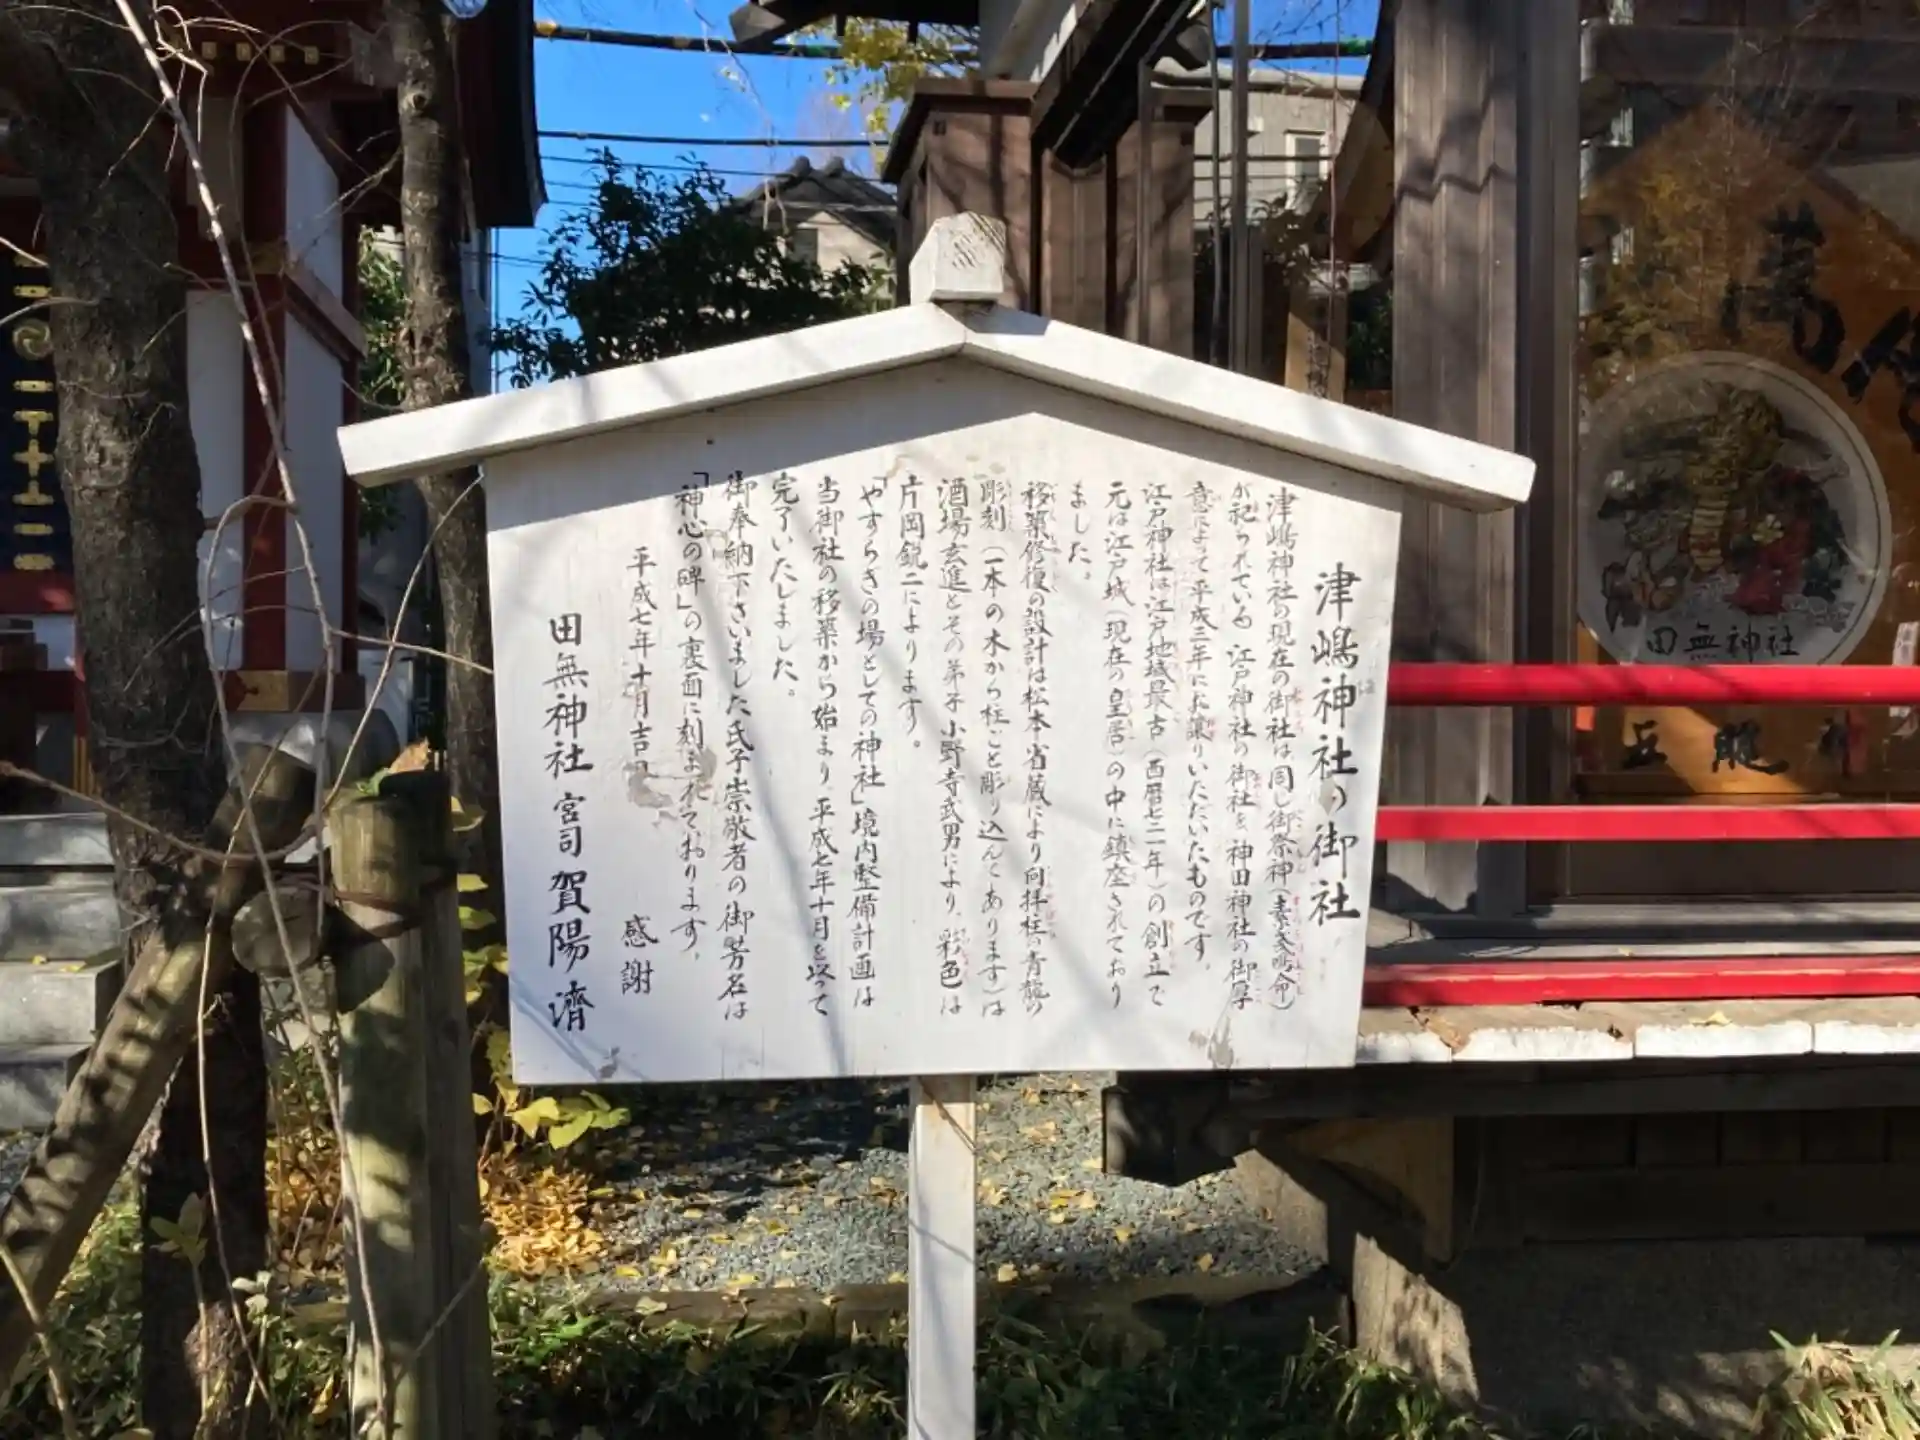 津嶋神社の御社
津嶋神社の現在の御社は、同じ御祭神(素戔嗚命)
が祀られている 江戸神社の御社を 神田神社の御厚
意によって平成三年にお譲りいただいたものです。
江戸神社は江戸地域最古(西暦七〇二年)の創立で
元は江戸城(現在の皇居)の中に鎮座されており
ました。
移築修復の設計は松本省蔵により向拝柱の青龍の
彫刻(一本の木から柱ごと彫り込んであります)は
酒場玄進とその弟子 小野寺武男により、彩色は
片岡鋭二によります。
「やすらぎの場としての神社」境内整備計画は
当御社の移築から始まり、平成七年十月を以って
完了いたしました。
御奉納下さいました氏子崇敬者の御芳名は
「神心の碑」の裏面に刻まれております。
平成七年十月吉日
感謝
田無神社 宮司 賀陽 濟
田無神社
五龍神